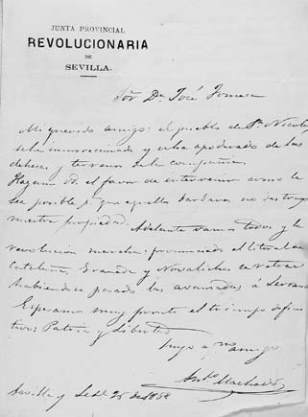 JUNTA PROVINCIAL
REVOLUCIONARIA
DE
SEVILLA.
Sor Dn José
Mi querido amigo: el pueblo de Sn Nicolas
se ha insurreccionado y se ha apoderado de las
dehesas y terrenos de la compañia.
Hagame Vd. el favor de intervenir como le
sea posible pa que aquellos barbaros no destrocen
nuestra propiedad. Adelante vamos todos y la
revolucion marcha: pronunciado el litoral
Cataluña, Granada y Novaliches en retirada
habiendose pasado las avanzadas á Serrano
Esperamos muy pronto el triunfo defini
tivo. Patria y libertad
Suyo a mo amigo
Anto Machado
Sevilla y Sebe 26 de 1868